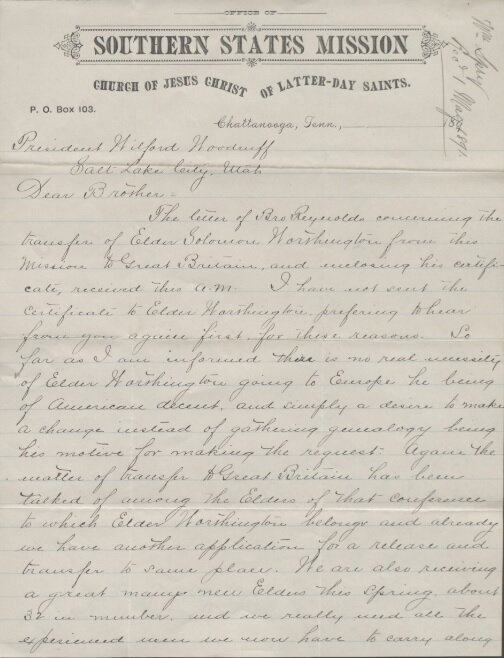 OFFICE OF
SOUTHERN STATES MISSION
CHURCH OF JESUS CHRIST OF LATTER-DAY SAINTS.
P. O. Box 103.
Chattanooga, Tenn.,
President Wilford Woodruff
Salt Lake City, Utah
Dear Brother:
The letter of Bro Reynolds concerning the
transfer of Elder Solomon Worthington from this
Mission to Great Britain, and inclosing his certifi-
cate, received this A.M. I have not sent the
certificate to Elder Worthington, prefering to hear
from you again first, for these reasons. So
far as I am informed there is no real necessity
of Elder Worthington going to Europe he being
of American decent, and simply a desire to make
a change instead of gathering genealogy being
his motive for making the request: Again the
matter of transfer to Great Britain has been
talked of among the Elders of that conference
to which Elder Worthington belongs and already
we have another application for a release and
transfer to same place. We are also receiving
a great many new Elders this Spring, about
32 in number, and we really need all the
experienced men we now have to carry along